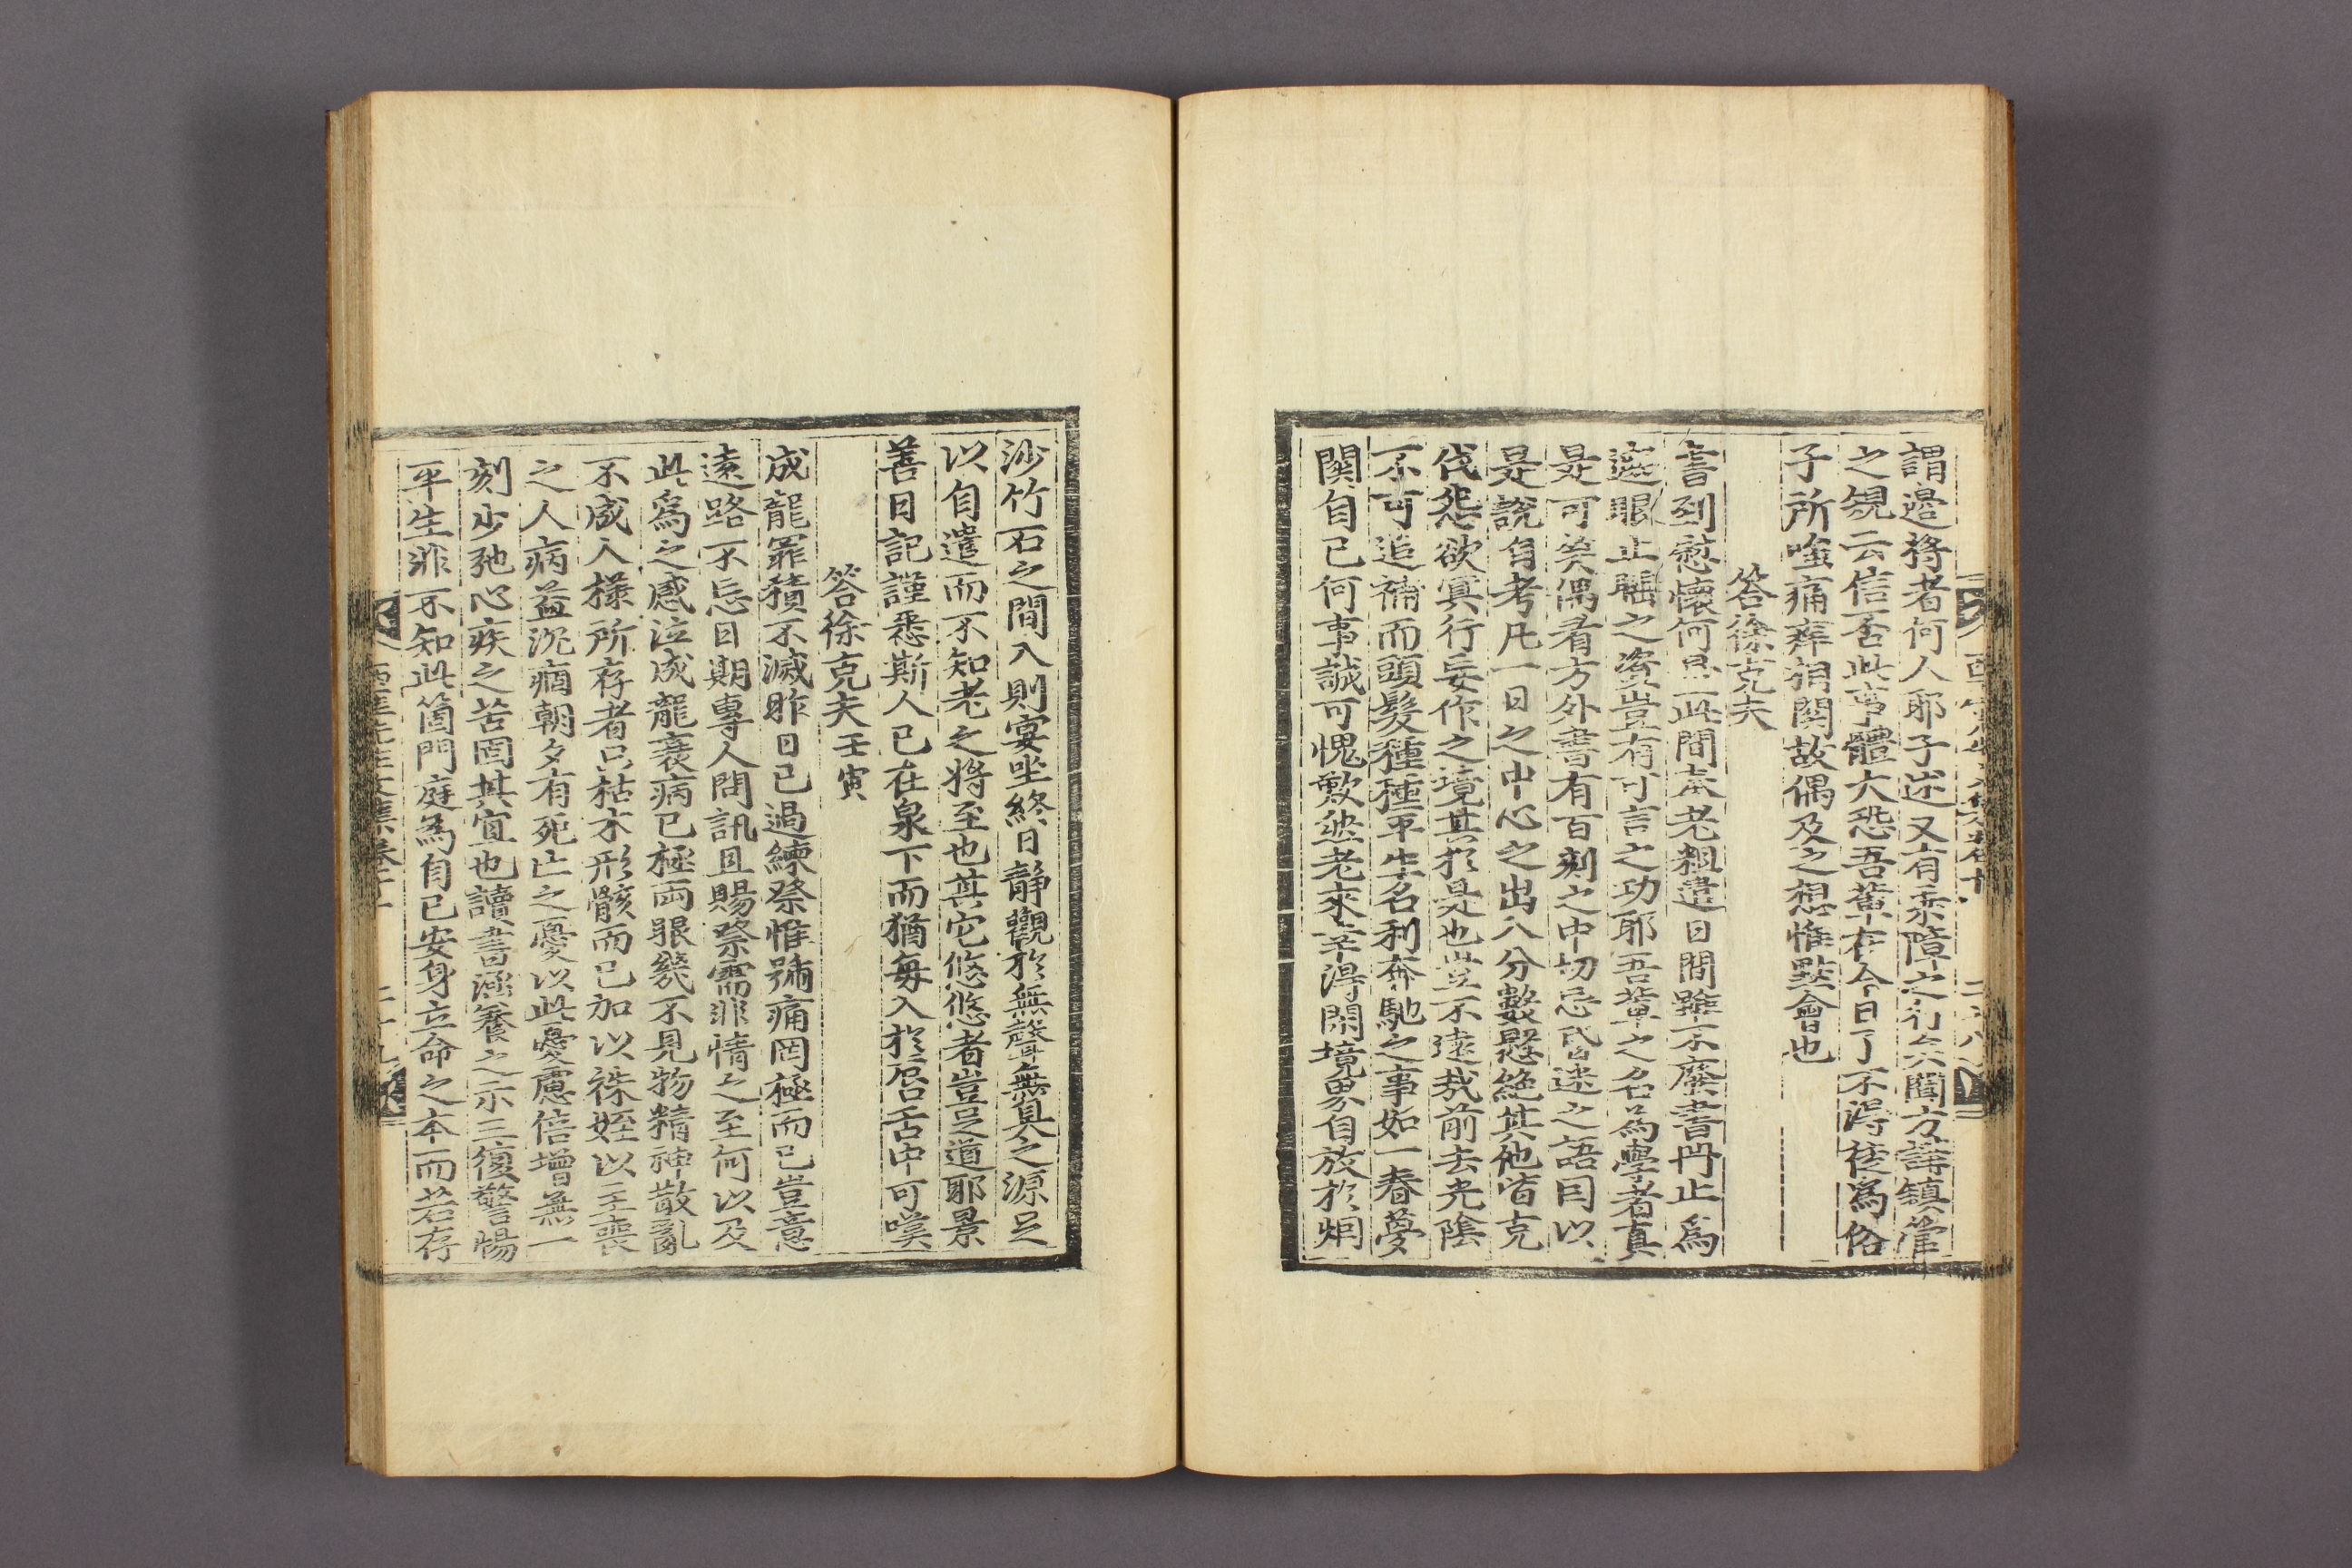 謂邉將者何人耶子述又有乘障之行六聞方譁鎮管
之䂓云信否此事體大恐吾輩在今日了不得徒爲俗
子所嗤痛癢相關故偶及之想惟默會也
答徐克夫
書到慰懷何已此間奉老粗遣日間雖不廢書冊止爲
遮眼止睡之資豈有可言之功耶吾輩之名爲學者真
是可笑偶看方外書有百刻之中切忌昏迷之語因以
是說自考凡一日之中心之出入分數懸絶其他皆克
伐怨欲冥行妄作之境其於是也豈不遠哉前去光陰
不可追補而頭髮種種平生名利奔馳之事如一春夢
関自己何事誠可愧歎然老來幸得閑境界自放於烟
沙竹石之間入則宴坐終日静觀於無聲無臭之源足
以自遣而不知老之將至也其它悠悠者豈足道耶景
善日記謹悉斯人已在泉下而猶每入於唇舌中可嘆
答徐克夫壬寅
成龍罪積不滅昨日已過練祭惟號痛罔極而已豈意
遠路不忘日期專人問訊且賜祭需非情之至何以及
此爲之感泣成龍衰病已極両眼幾不見物精神散亂
不成人樣所存者只枯木形骸而已加以袾姪以主喪
之人病益沉痼朝夕有死亡之憂以此憂慮倍增無一
刻少弛心疾之苦固其宜也讀書涵養之示三復警惕
平生非不知此箇門庭為自己安身立命之本而若存